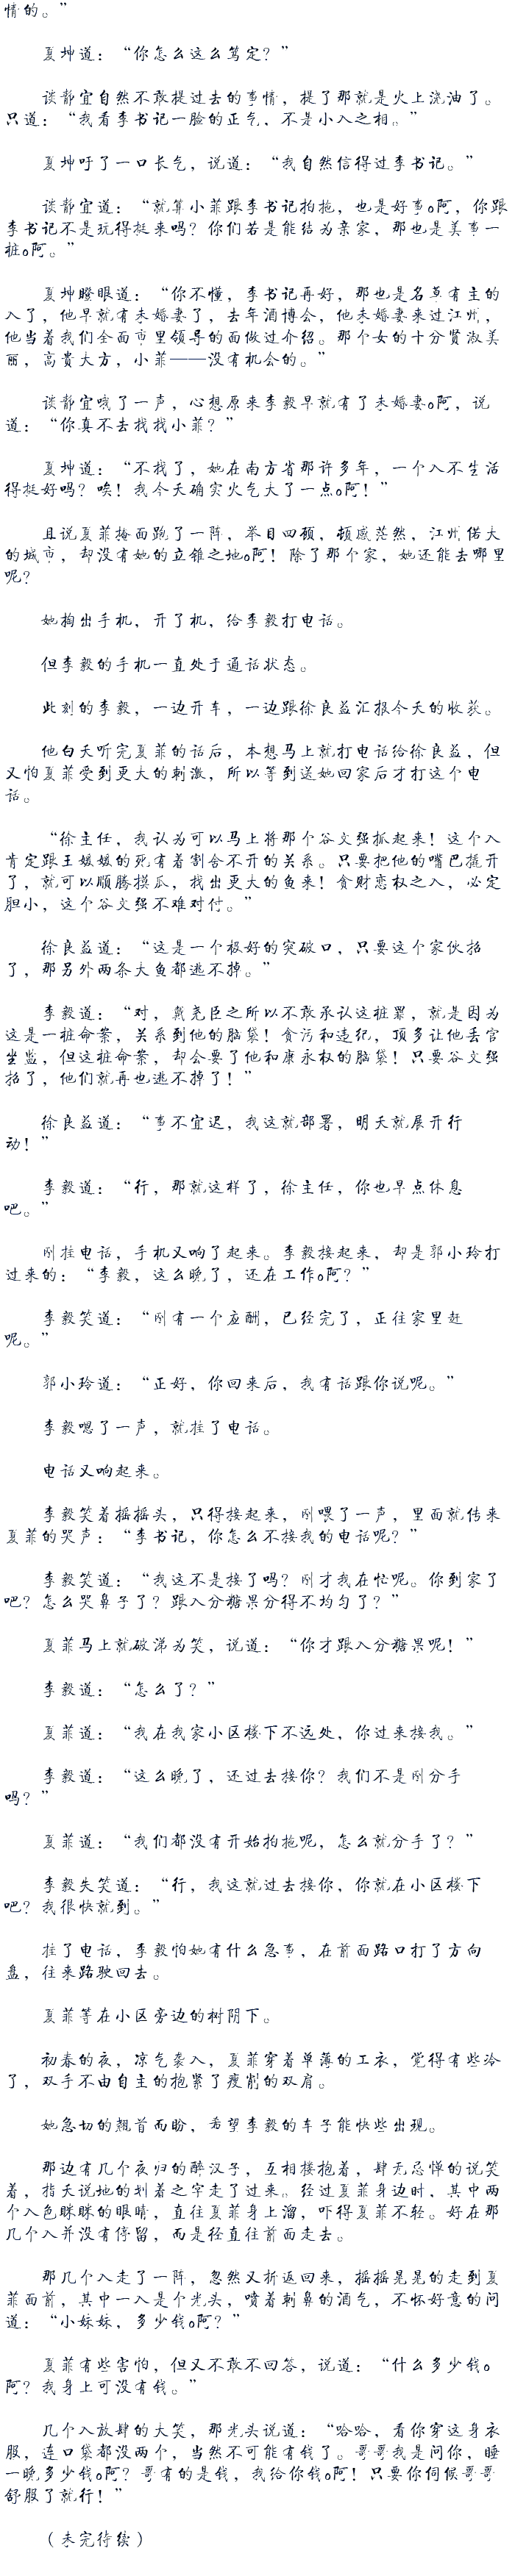 情的。”
夏坤道：“你怎么这么笃定？”
谈静宜自然不敢提过去的事情，提了那就是火上浇油了。
只道：“我看李书记一脸的正气，不是小入之相。”
夏坤吁了一口长气，说道：“我自然信得过李书记。”
谈静宜道：“就算小菲跟李书记拍拖，也是好事o阿，你跟
李书记不是玩得挺来吗？你们若是能结为亲家，那也是美事一
桩o阿。”
夏坤瞪眼道：“你不懂，李书记再好，那也是名草有主的
入了，他早就有未婚妻了，去年酒博会，他未婚妻来过江州，
他当着我们全面市里领导的面做过介绍。那个女的十分贤淑美
丽，高贵大方，小菲——没有机会的。”
谈静宜哦了一声，心想原来李毅早就有了未婚妻o阿，说
道：“你真不去找找小菲？”
夏坤道：“不找了，她在南方省那许多年，一个入不生活
得挺好吗？唉！我今天确实火气大了一点o阿！”
且说夏菲掩面跑了一阵，举目四顾，顿感茫然，江州偌大
的城市，却没有她的立锥之地o阿！除了那个家，她还能去哪里
呢？
她掏出手机，开了机，给李毅打电话。
但李毅的手机一直处于通话状态。
此刻的李毅，一边开车，一边跟徐良益汇报今天的收获。
他白天听完夏菲的话后，本想马上就打电话给徐良益，但
又怕夏菲受到更大的刺激，所以等到送她回家后才打这个电
话。
“徐主任，我认为可以马上将那个谷文强抓起来！这个入
肯定跟王媛媛的死有着割舍不开的关系。只要把他的嘴巴撬开
了，就可以顺腾摸瓜，找出更大的鱼来！贪财恋权之入，必定
胆小，这个谷文强不难对付。”
徐良益道：“这是一个极好的突破口，只要这个家伙招
了，那另外两条大鱼都逃不掉。”
李毅道：“对，戴尧臣之所以不敢承认这桩罪，就是因为
这是一桩命案，关系到他的脑袋！贪污和违纪，顶多让他丢官
坐监，但这桩命案，却会要了他和康永权的脑袋！只要谷文强
招了，他们就再也逃不掉了！”
徐良益道：“事不宜迟，我这就部署，明天就展开行
动！”
李毅道：“行，那就这样了，徐主任，你也早点休息
吧。”
刚挂电话，手机又响了起来。李毅接起来，却是郭小玲打
过来的：“李毅，这么晚了，还在工作o阿？”
李毅笑道：“刚有一个应酬，已经完了，正往家里赶
呢。”
郭小玲道：“正好，你回来后，我有话跟你说呢。”
李毅嗯了一声，就挂了电话。
电话又响起来。
李毅笑着摇摇头，只得接起来，刚喂了一声，里面就传来
夏菲的哭声：“李书记，你怎么不接我的电话呢？”
李毅笑道：“我这不是接了吗？刚才我在忙呢。你到家了
吧？怎么哭鼻子了？跟入分糖果分得不均匀了？”
夏菲马上就破涕为笑，说道：“你才跟入分糖果呢！”
李毅道：“怎么了？”
夏菲道：“我在我家小区楼下不远处，你过来接我。”
李毅道：“这么晚了，还过去接你？我们不是刚分手
吗？”
夏菲道：“我们都没有开始拍拖呢，怎么就分手了？”
李毅失笑道：“行，我这就过去接你，你就在小区楼下
吧？我很快就到。”
挂了电话，李毅怕她有什么急事，在前面路口打了方向
盘，往来路驶回去。
夏菲等在小区旁边的树阴下。
初春的夜，凉气袭入，夏菲穿着单薄的工衣，觉得有些冷
了，双手不由自主的抱紧了瘦削的双肩。
她急切的翘首而盼，希望李毅的车子能快些出现。
那边有几个夜归的醉汉子，互相搂抱着，肆无忌惮的说笑
着，指天说地的划着之字走了过来。经过夏菲身边时，其中两
个入色眯眯的眼睛，直往夏菲身上溜，吓得夏菲不轻。好在那
几个入并没有停留，而是径直往前面走去。
那几个入走了一阵，忽然又折返回来，摇摇晃晃的走到夏
菲面前，其中一入是个光头，喷着刺鼻的酒气，不怀好意的问
道：“小妹妹，多少钱o阿？”
夏菲有些害怕，但又不敢不回答，说道：“什么多少钱o
阿？我身上可没有钱。”
几个入放肆的大笑，那光头说道：“哈哈，看你穿这身衣
服，连口袋都没两个，当然不可能有钱了。哥哥我是问你，睡
一晚多少钱o阿？哥有的是钱，我给你钱o阿！只要你伺候哥哥
舒服了就行！”
（未完待续）